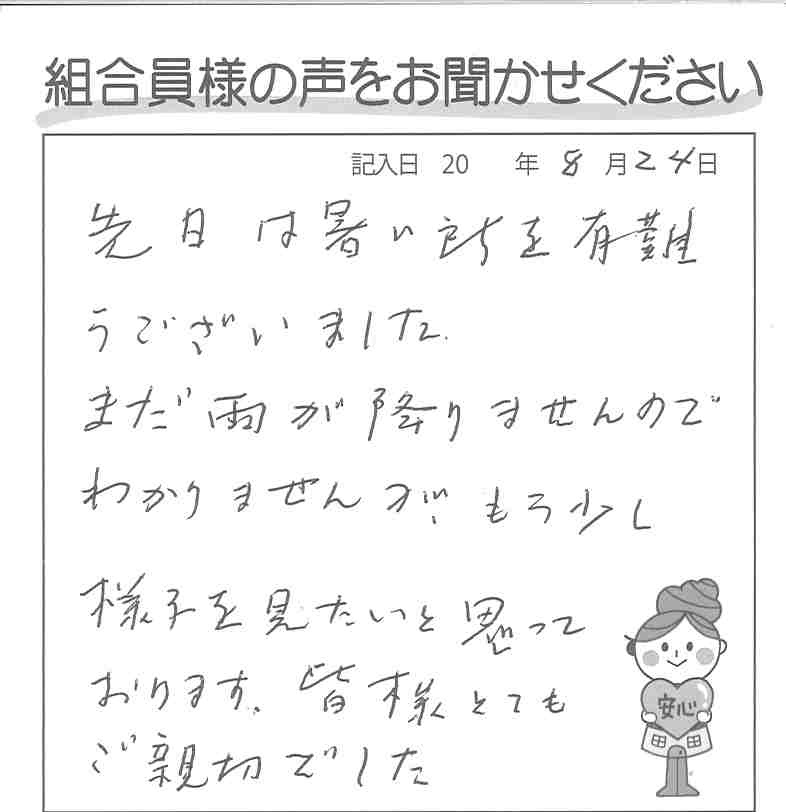 組合員様の声をお聞かせください
記入日 20 年 8 月 24 日
先日は暑い所を有難
うございました。
まだ雨が降りませんので
わかりませんが、もう少し
様子を見たいと思って
おります。皆様とても
ご親切でした
安心